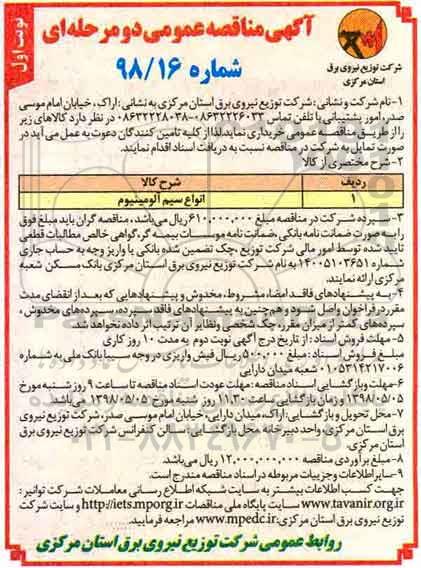 نوبت اول
آگهی مناقصه عمومی دو مرحله ای
شماره ۹۸/۱۶
شرکت توزیع نیروی برق
استان مرکزی
۱-نام شرکت و نشانی: شرکت توزیع نیروی برق استان مرکزی به نشانی: اراک، خیابان امام موسی
صدر، امور پشتیبانی با تلفن تماس ۰۸۶۳۲۲۲۶۰۳۳-۰۸۶۳۲۲۲۸۰۳۸ در نظر دارد کالاهای زیر
را از طریق مناقصه عمومی خریداری نماید. لذا از کلیه تامین کنندگان دعوت به عمل می آید در
صورت تمایل به شرکت در مناقصه نسبت به دریافت اسناد اقدام نمایند.
۲-شرح مختصری از کالا
ردیف شرح کالا
۱ انواع سیم آلومینیوم
۳-سپرده شرکت در مناقصه مبلغ ۶۱۰,۰۰۰,۰۰۰ ریال می باشد، مناقصه گران باید مبلغ فوق
را به صورت ضمانت نامه بانکی، ضمانت نامه موسسات بیمه گر، گواهی خالص مطالبات قطعی
تایید شده توسط امور مالی شرکت توزیع، چک تضمین شده بانکی یا واریز وجه به حساب جاری
شماره ۱۴۰۰۵۱۰۳۶۵۱ به نام شرکت توزیع نیروی برق استان مرکزی بانک مسکن شعبه
مرکزی ارائه نمایند.
۴-به پیشنهادهای فاقد امضاء، مشروط، مخدوش و پیشنهادهایی که بعد از انقضای مدت
مقرر در فراخوان واصل شود و هم چنین به پیشنهادهای فاقد سپرده، سپرده های مخدوش،
سپرده های کمتر از میزان مقرر، چک شخصی و نظایر آن ترتیب اثر داده نخواهد شد.
۵-مهلت فروش اسناد: از تاریخ درج آگهی نوبت دوم به مدت ۱۰ روز کاری
مبلغ فروش اسناد: مبلغ ۵۰۰,۰۰۰ ریال فیش واریزی در وجه سیبا بانک ملی به شماره
۰۱۰۵۳۱۴۲۱۷۰۰۶ شعبه میدان دارایی
۶-مهلت و بازگشایی اسناد مناقصه: مهلت عودت اسناد مناقصه تا ساعت ۹ روز شنبه مورخ
۱۳۹۸/۰۵/۰۵ و زمان بازگشایی ساعت ۱۱:۳۰ روز شنبه مورخ ۱۳۹۸/۰۵/۰۵ می باشد.
۷-محل تحویل و بازگشایی: اراک، میدان دارایی، خیابان امام موسی صدر، شرکت توزیع نیروی
برق استان مرکزی، واحد دبیرخانه. محل بازگشایی: سالن کنفرانس شرکت توزیع نیروی برق
استان مرکزی.
۸-مبلغ برآوردی مناقصه ۱۲,۰۰۰,۰۰۰,۰۰۰ ریال می باشد.
۹-سایر اطلاعات و جزییات مربوطه در اسناد مناقصه مندرج است.
جهت کسب اطلاعات بیشتر به سایت شبکه اطلاع رسانی معاملات شرکت توانیر:
www.tavanir.org.ir سایت پایگاه ملی مناقصات http://iets.mporg.ir و سایت شرکت
توزیع نیروی برق استان مرکزی: www.mpedc.ir مراجعه فرمایید.
روابط عمومی شرکت توزیع نیروی برق استان مرکزی